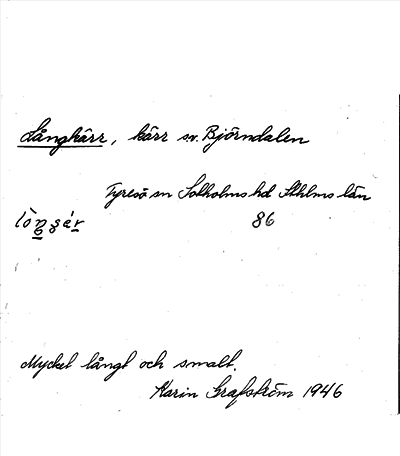 Långkärr, kärr sv. Björndalen
Tyresö sn Solholms hd Sthlms län
86
Mycket långt och smalt.
Karin Grafström 1946